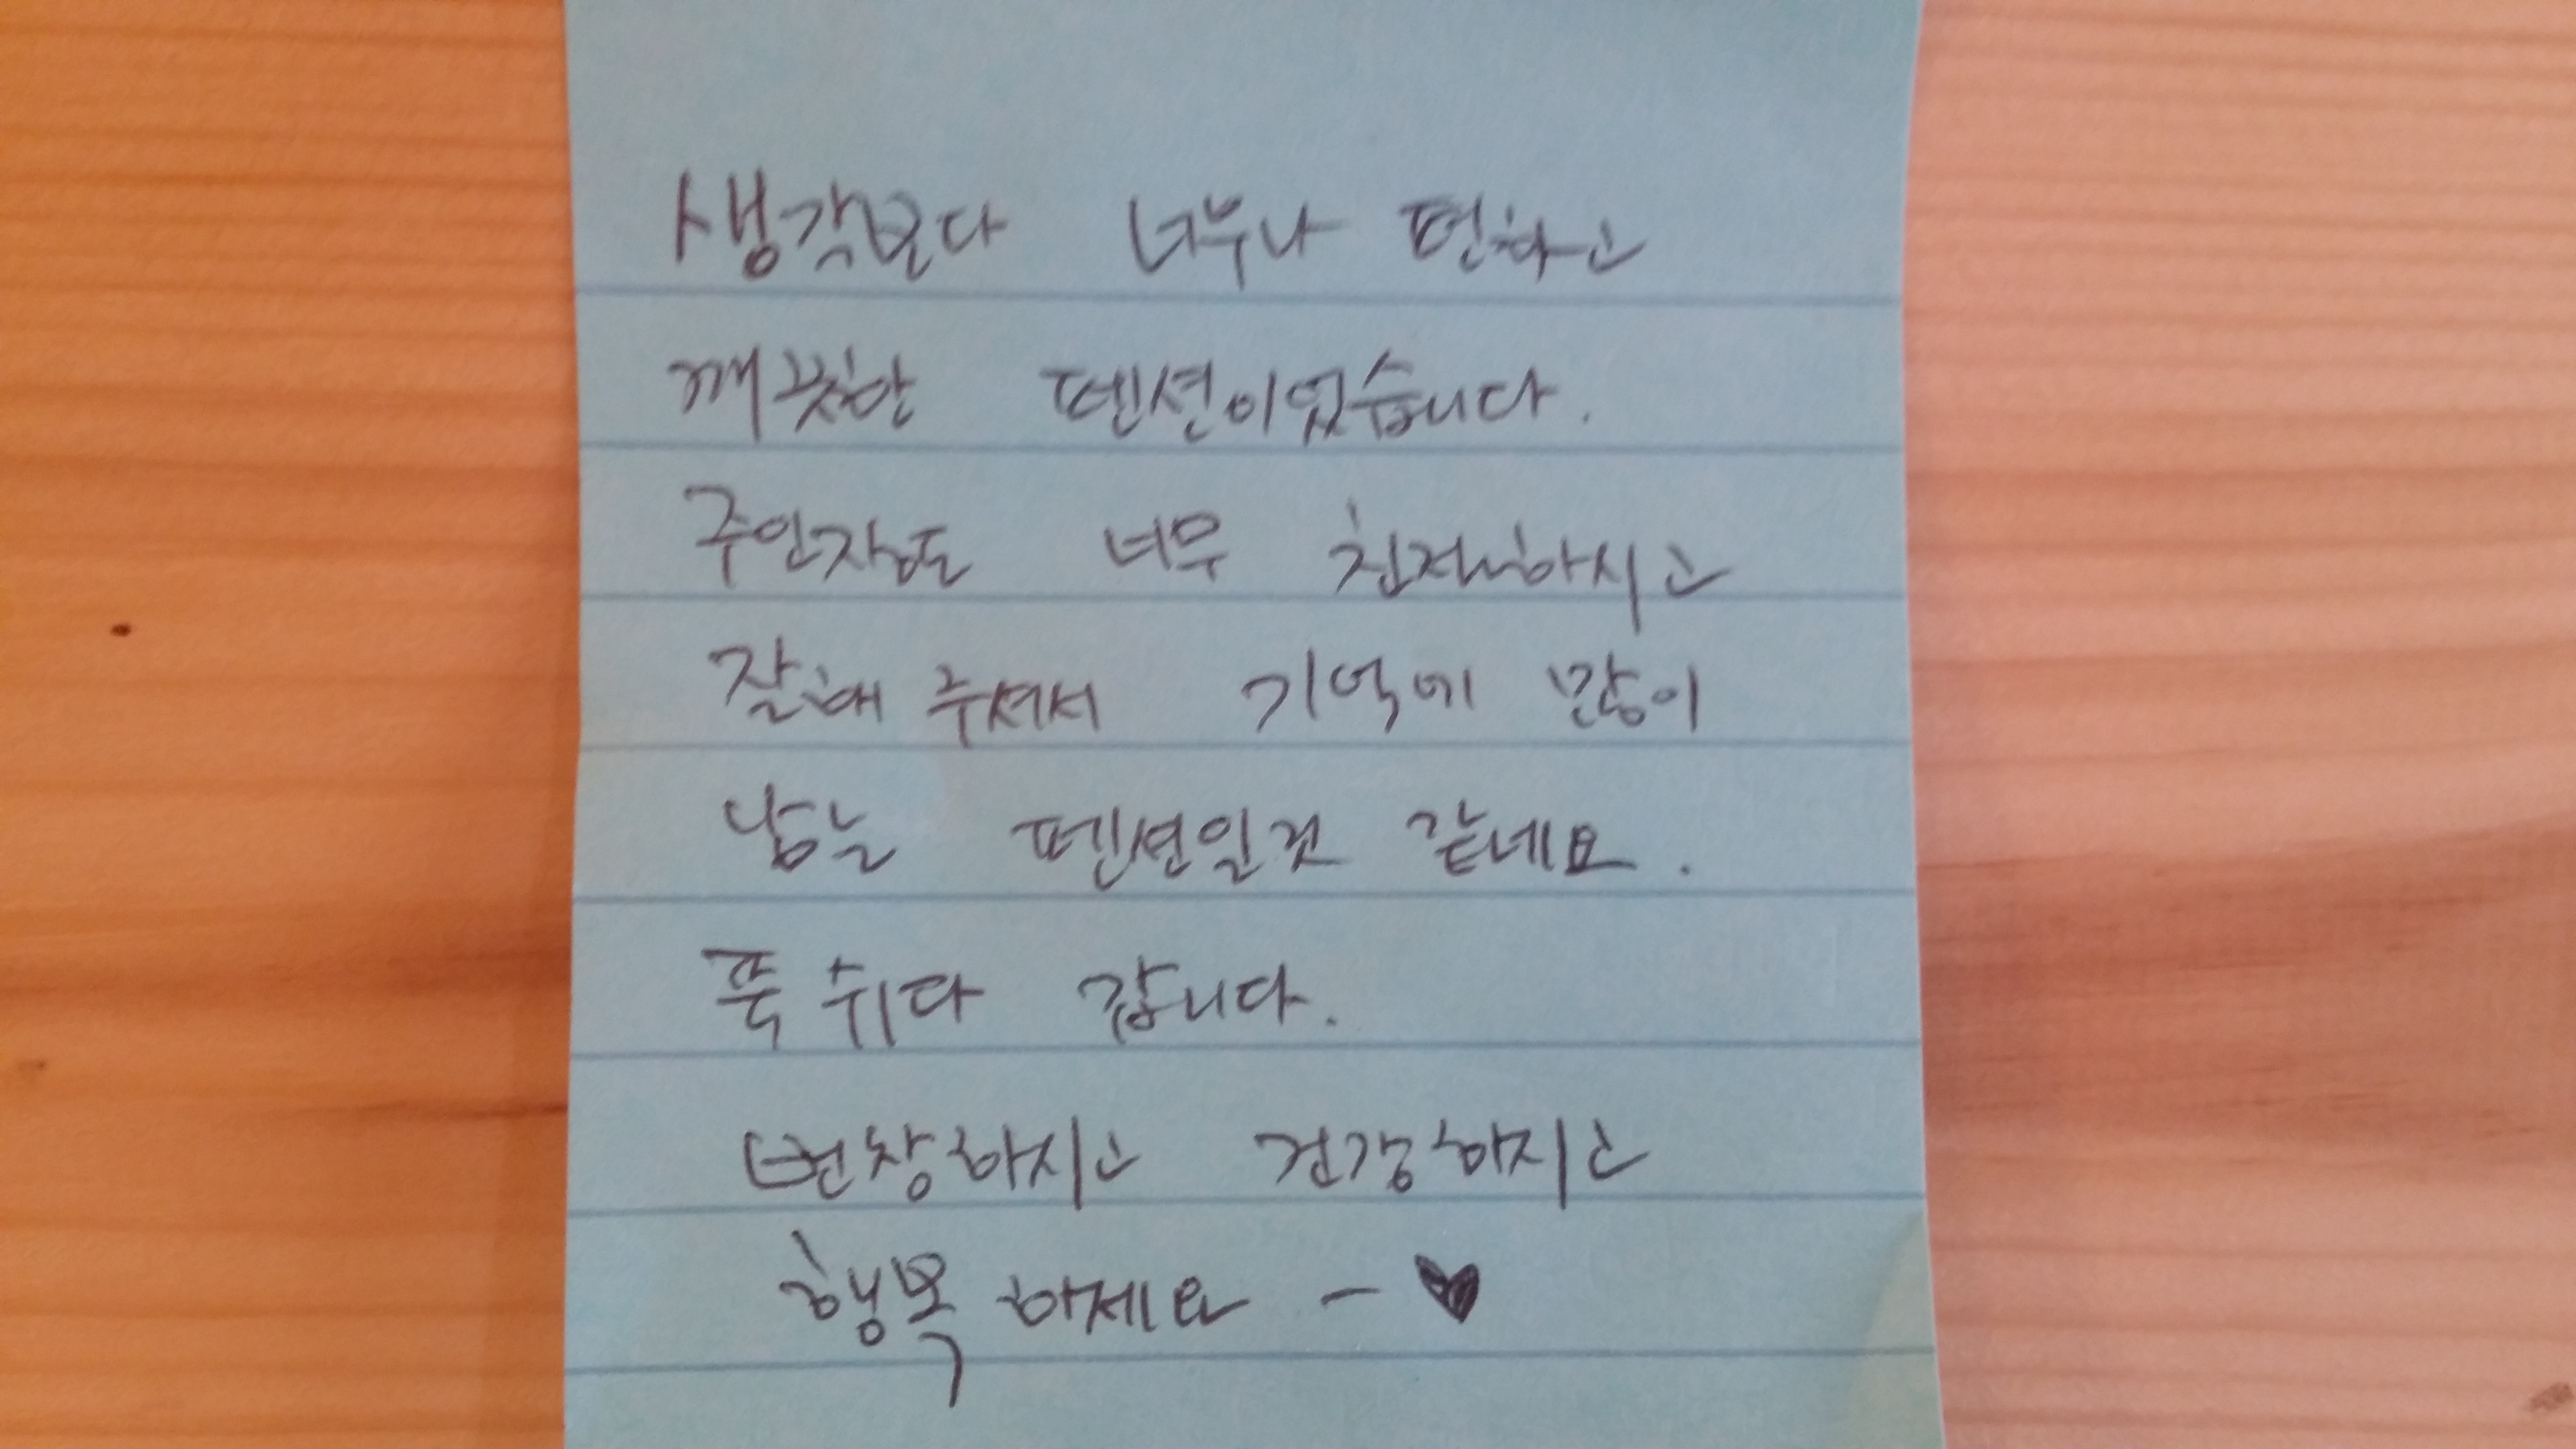 생각보다 너무나 편하고
깨끗한 펜션이었습니다.
주인장님도 너무 친절하시고
잘해 주셔서 기억에 많이
남는 펜션일것 같네요.
푹 쉬다 갑니다.
번창하시고 건강하시고
행복 하세요 - ♥